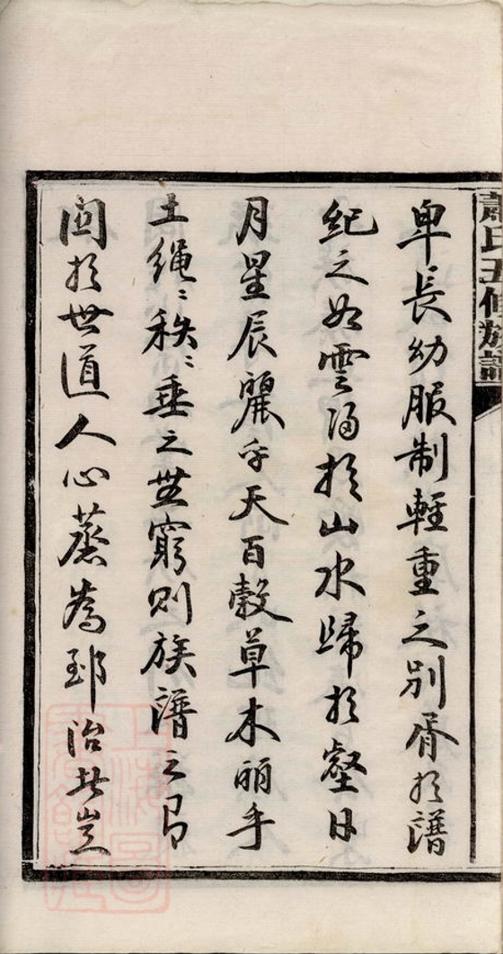 蕭氏五修族譜
卑長幼服制輕重之別胥於譜
紀之如雲歸於山水歸於壑日
月星辰麗乎天百穀草木麗乎
土繩〻秩〻垂之無窮則族譜之有
関於世道人心蒸為郅治者豈
上海圖書館藏